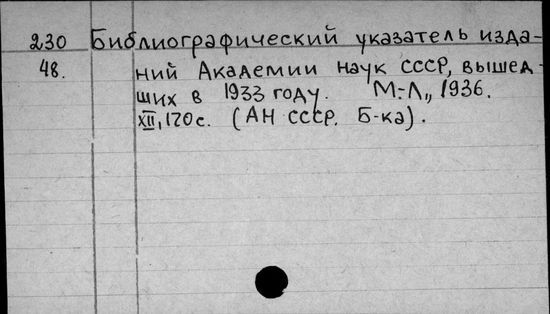 230 Библиографический указатель изда-
48. ний Академии наук СССР, вышед-
ших в 1933 году. М.-Л., 1936.
XII, 170 с. (АН СССР. Б-ка).